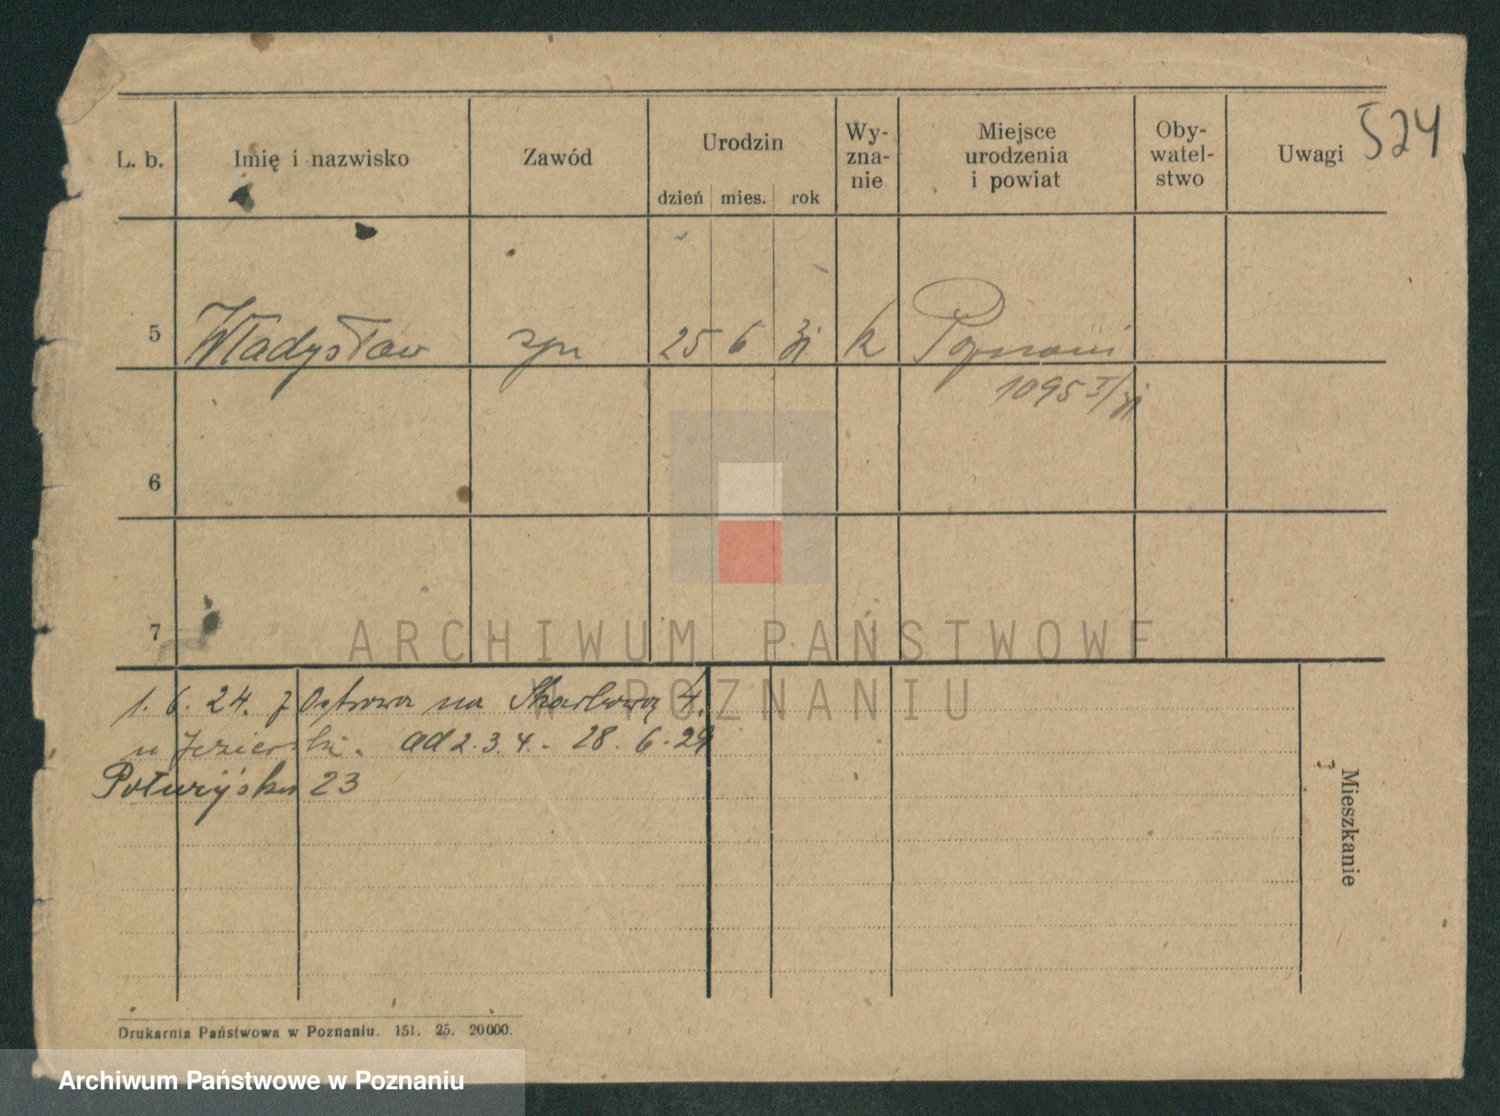 524
L. b. Imię i nazwisko Zawód Urodzin dzień mies. rok Wy-zna-nie Miejsce urodzenia i powiat Oby-watel-stwo Uwagi
5 Władysław 25 6 31 k Poznań
1095 I/31
6
7
1. 6. 24. z Ostrowa na Skarbową 4.
u ad 2.3.4. - 28. 6. 29
23
Mieszkanie
Drukarnia Państwowa w Poznaniu. 151. 25. 20000.
ARCHIWUM PAŃSTWOWE
W POZNANIU
Archiwum Państwowe w Poznaniu